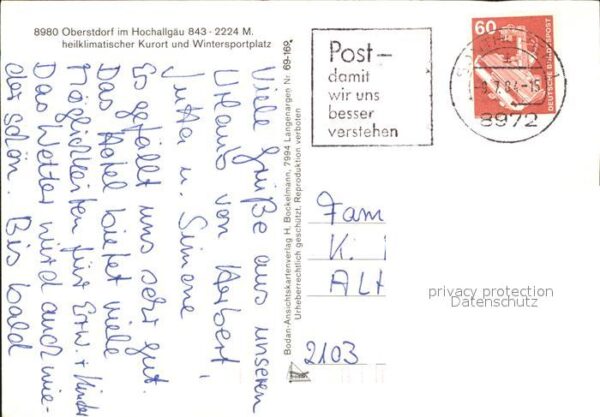 8980 Oberstdorf im Hochallgäu 843 - 2224 M.
heilklimatischer Kurort und Wintersportplatz
Viele Grüße aus unseren
Urlaub von Herbert,
Jutta u. Simone
Es gefällt uns sehr gut.
Das Hotel bietet viele
Möglichkeiten für Erw. + Kinder
Das Wetter wird auch wie-
der schön. Bis bald
Bodan-Ansichtskartenverlag H. Bockelmann, 7994 Langenargen Nr. 89-169
Urheberrechtlich geschützt. Reproduktion verboten
Post –
damit
wir uns
besser
verstehen
60
DEUTSCHE BUNDESPOST
7.84-15
8972
Fam
K.
Alt
2103
privacy protection
Datenschutz